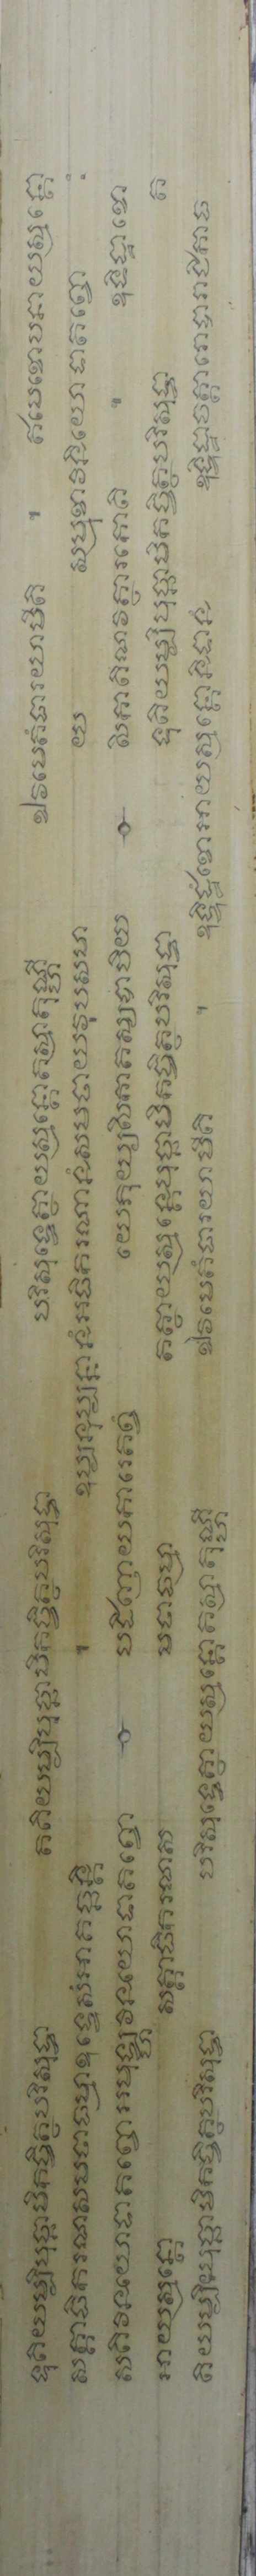 ទុតិយម្បិបុច្ឆាមិកច្ចិត្ថបរិសុទ្ធា តតិយម្បិបុច្ឆាមិកច្ចិត្ថបរិសុទ្ធា បរិសុទ្ធេត្ថាយស្មន្តោតស្មាតុណ្ហី ឯវមេតំធារយាមីតិ ។ ឥមេខោបនាយស្មន្តោ
សត្តាធិករណសមថាធម្មាឧទ្ទេសំអាគច្ឆន្តិ ។ ឧប្បន្នុប្បន្នានំអធិករណានំសមថាយវុបសមា យ សម្មុខាវិនយោទាតព្វោ
សតិវិនយោទាតព្វោអមុឡ្ហវិនយោទាតព្វោ បដិញាយការេតព្វំ យេភុយ្យសិកាតស្សបាបិយ សិកាតិណវត្ថារកោតិ ។ ឧទ្ទិដ្ឋាខោ
អាយស្មន្តោ សត្តាធិករណស មថាធម្មា តត្ថាយស្មន្តេបុច្ឆាមិកច្ចិត្ថបរិសុទ្ធា ទុតិយម្បិបុច្ឆាមិកច្ចិត្ថបរិសុទ្ធា ត
តិយម្បិបុច្ឆាមិកច្ចិត្ថបរិសុទ្ធា បរិសុទ្ធេត្ថាយស្មន្តោតស្មាតុណ្ហី ឯវមេតំធារយាមីតិ ។ ឧទ្ទិដ្ឋំខោអាយស្មន្តោនិទានំ ឧទ្ទិដ្ឋាចត្តារោបារាជិកាធ